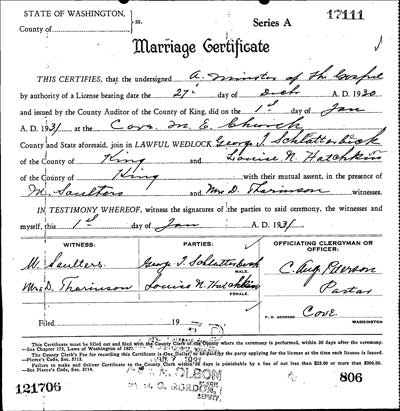 STATE OF WASHINGTON,
County of
ss.
Series A
17111
Marriage Certificate
THIS CERTIFIES, that the undersigned a Minister of the Gospel
by authority of a License bearing date the 27" day of Dec A. D. 1930
and issued by the County Auditor of the County of King, did on the 1st day of Jan
A. D. 1931 at the M. E. Church
County and State aforesaid, join in LAWFUL WEDLOCK George T. Schlatterbeck
of the County of King and Louise N. Hutchkins
of the County of King with their mutual assent, in the presence of
M. Saulters and Mrs D. Tharinson witnesses.
IN TESTIMONY WHEREOF, witness the signatures of the parties to said ceremony, the witnesses and
myself, this 1st day of Jan A. D. 1931
WITNESS:
PARTIES:
OFFICIATING CLERGYMAN OR OFFICER:
M. Saulters.
George T. Schlatterbeck
MALE.
C. Aug Peterson
Mrs D. Tharinson
Louise N. Hutchkins
FEMALE.
Pastor
P. O. ADDRESS Cove
WASHINGTON
Filed 19
This Certificate must be filled out and filed with the County Clerk of the County where the ceremony is performed, within 30 days after the ceremony.
—See Chapter 172, Laws of Washington of 1927.
The County Clerk's Fee for recording this Certificate is One Dollar, to be paid by the party applying for the license at the time such license is issued.
—Pierce's Code, Sec. 3715.
Failure to make and deliver Certificate to the County Clerk within 30 days is punishable by a fine of not less than $25.00 or more than $300.00.
—See Pierce's Code, Sec. 3714.
OLSON
CLERK
GORDON,
DEPUTY.
121706
806